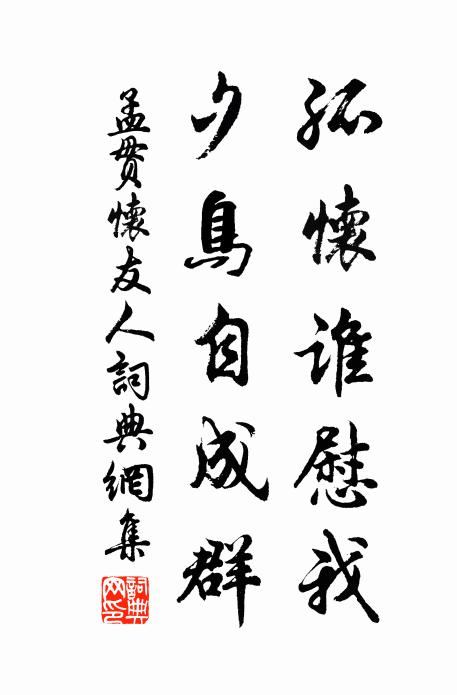 孤懷誰慰我
夕鳥自成群
孟貫懷友人詞典網集
詞典網印